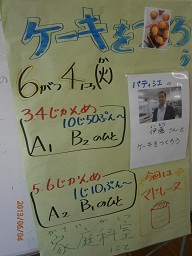 ケーキをつくろう
6がつ4にち(火)
パティシエの
伊藤さんと
ケーキをつくろう
3.4じかんめ
10じ50ぷん〜
A1 B2のひと
今回は
マドレーヌ
5.6じかんめ
1じ10ぷん〜
A2 B1のひと
家庭科室
にて
2013/06/04